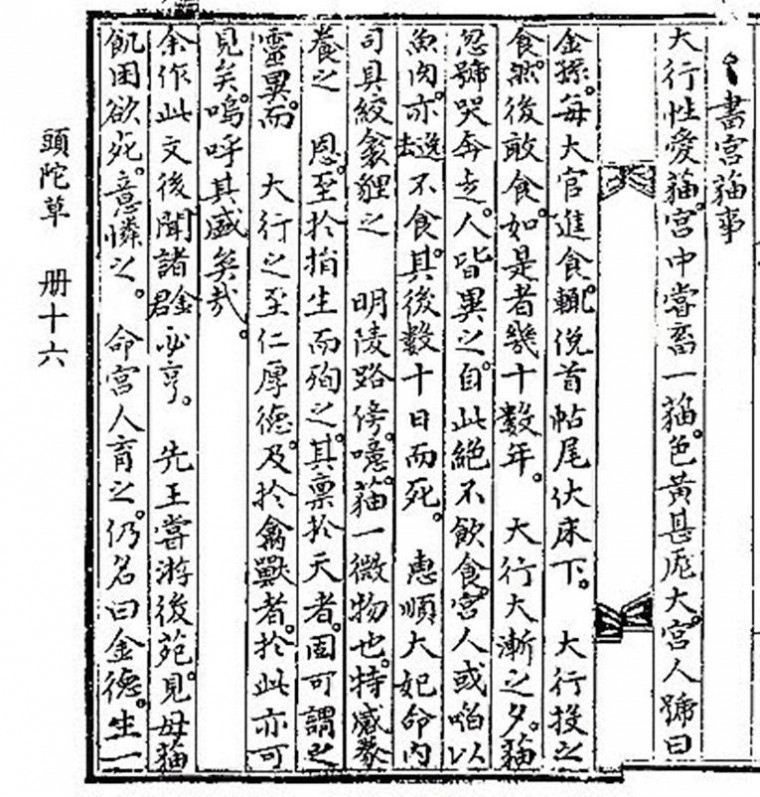 書宮猫事
大行性愛猫。宮中嘗畜一猫。色黃甚厖大。宮人號曰
金猻。每大官進食。輒俛首帖尾伏床下。 大行投之
食。然後敢食。如是者幾十數年。 大行大漸之夕。猫
忽號哭奔走。人皆異之。自此絶不飮食。宮人或啗以
魚肉。亦逸去不食。其後數十日而死。 惠順大妃命內
司具絞衾貍之 明陵路傍。噫。猫一微物也。特感豢
養之 恩。至於捐生而殉之。其禀於天者。固可謂之
靈異。而 大行之至仁厚德。及於禽獸者。於此亦可
見矣。嗚呼其盛矣哉。
余作此文後聞諸金君必亨。 先王嘗游後苑。見母猫
飢困欲死。意憐之。 命宮人育之。仍名曰金德。生一
頭陀草 册十六